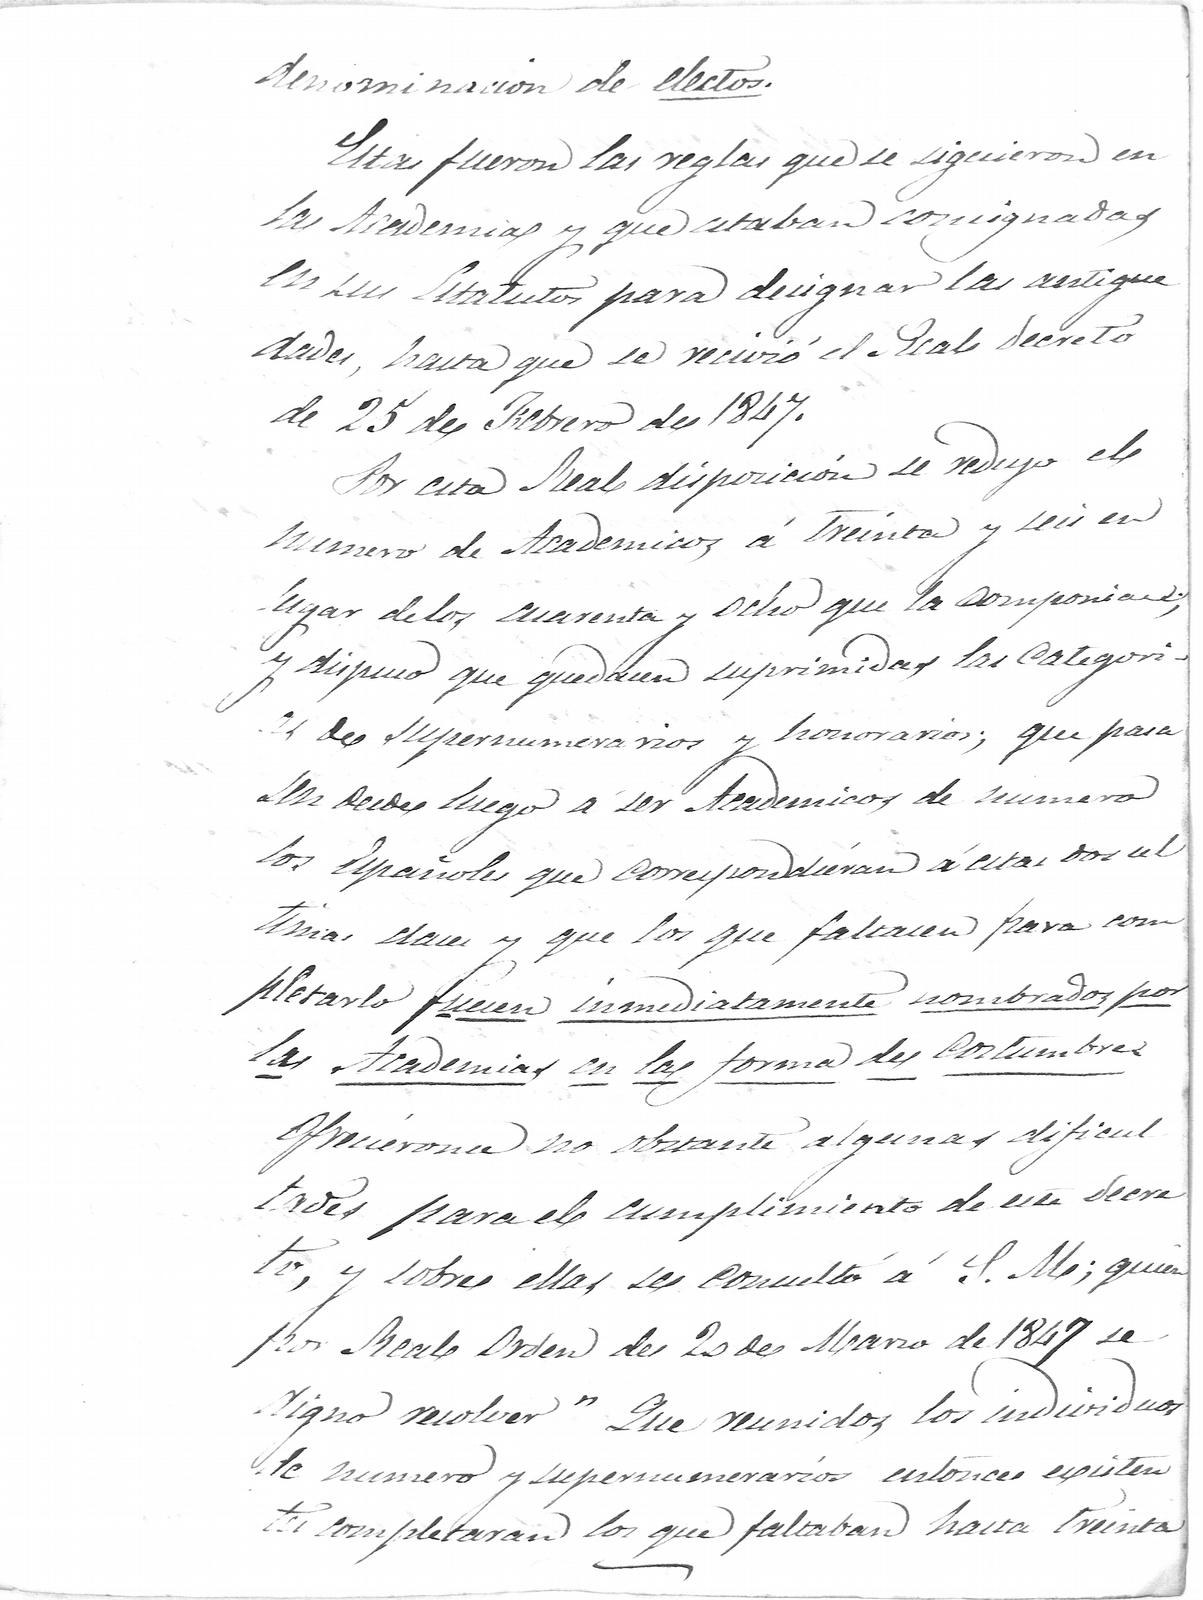 denominacion de electos.
Estas fueron las reglas que se siguieron en
la Academia y que estaban consignadas
en sus Estatutos para designar las antigue
dades, hasta que se recivió el Real decreto
de 25 de Febrero de 1847.
Por esta Real disposición se redujo el
numero de Academicos á treinta y seis en
lugar de los cuarenta y ocho que la componian;
y dispuso que quedasen suprimidas las categori-
as de supernumerarios y honorarios; que pasa
sen desde luego a ser Academicos de numero
los Españoles que correspondieran á estas dos ul
timas clases y que los que faltasen para com
pletarlo fuesen inmediatamente nombrados por
la Academia en la forma de costumbre
Ofrecieronse no obstante algunas dificul
tades para el cumplimiento de este decre
to, y sobre ellas se consultó á S. M.; quien
por Real Orden de 20 de Marzo de 1847 se
digno resolver " Que reunidos los individuos
de numero y supernumerarios entonces existen
tes completaran los que faltaban hasta treinta